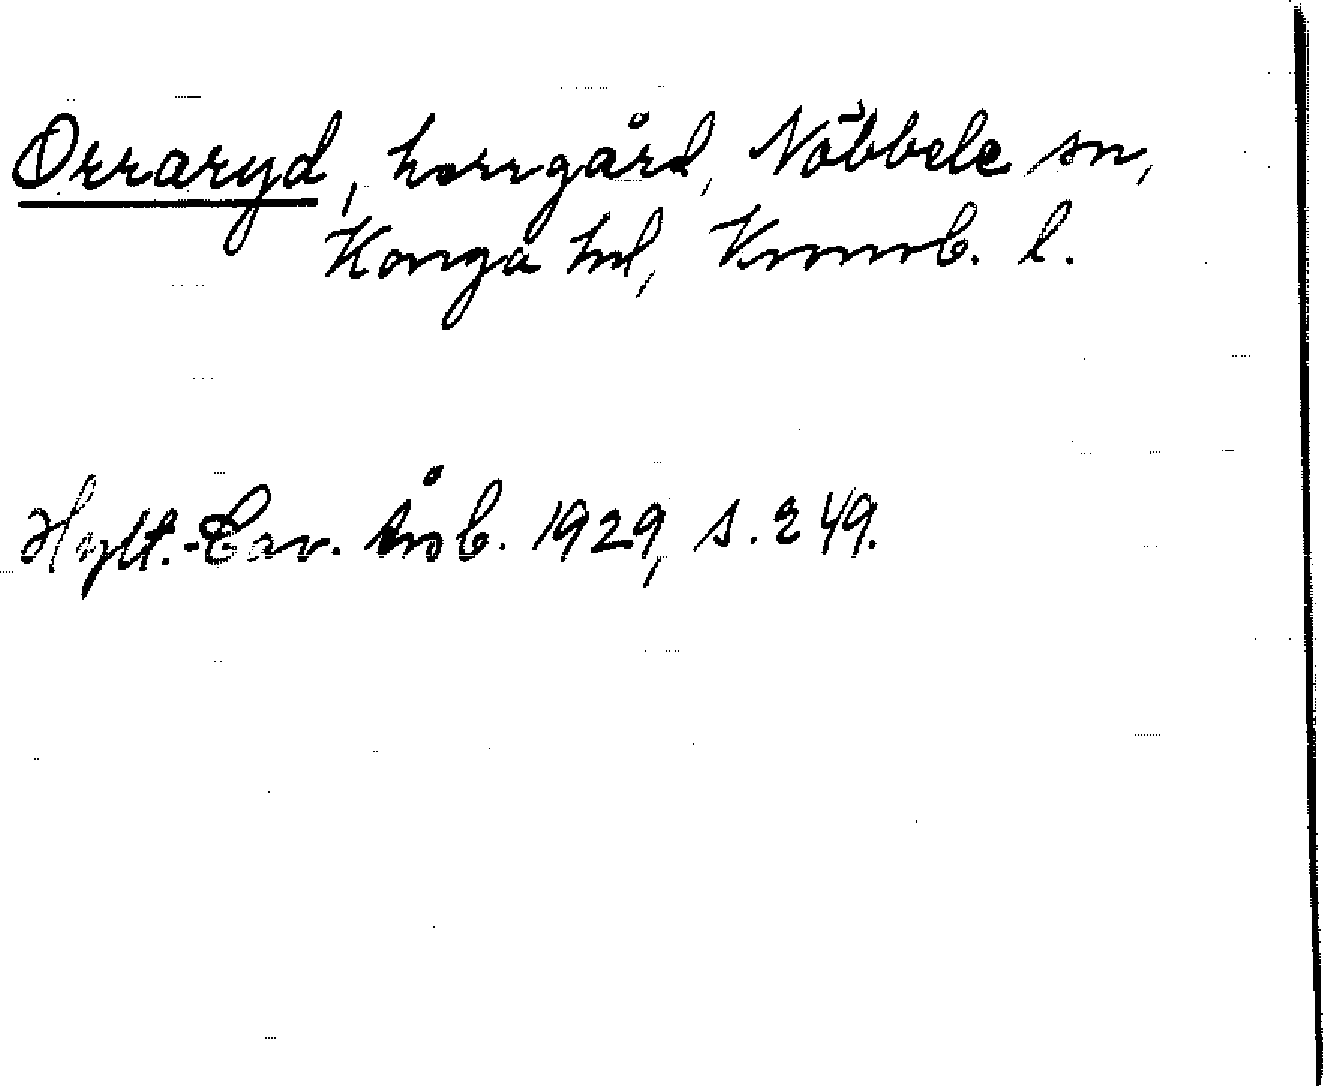 Orraryd, herrgård, Nöbbele sn,
Konga hd, Kronob. l.
Hylt.-Cav. årsb. 1929, s. 249.